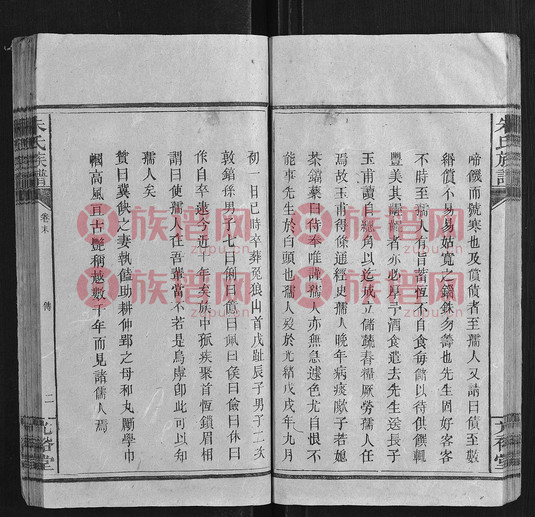 朱氏族譜
啼饑而號寒也及償債者至孺人又請曰債至數
緡償不易易姑寬之錙銖勿籌也先生固好客客
不時至孺人有旨蓄恆不自食每儲以待供饌輒
豐美其
者亦必厚予酒食遣去先生送長子
玉甫讀自總角以迄成立儲蔬舂糧厥勞孺人任
焉故玉甫得條通經史孺人晚年病痰歐子若媳
茶鐺藥臼侍奉唯謹孺人亦無急遽色尤自恨不
能事先生於白頭也孺人歿於光緒戊戌年九月
初一日巳時卒葬兔狼山首戌趾辰子男子二次
敦鎔孫男子七曰俐曰
曰佩曰侯曰儉曰休曰
作自卒迄今近二年矣族中孤疾聚首恆鎖眉相
謂曰使孺人在吾輩當不若是烏虖卽此可以知
孺人矣
贊曰冀缺之妻執饁助耕仲郢之母和丸勵學巾
幗高風亘古艷稱越數千年而見諸孺人焉
朱氏族譜
卷末
傳
二
族譜网
zupu.cn